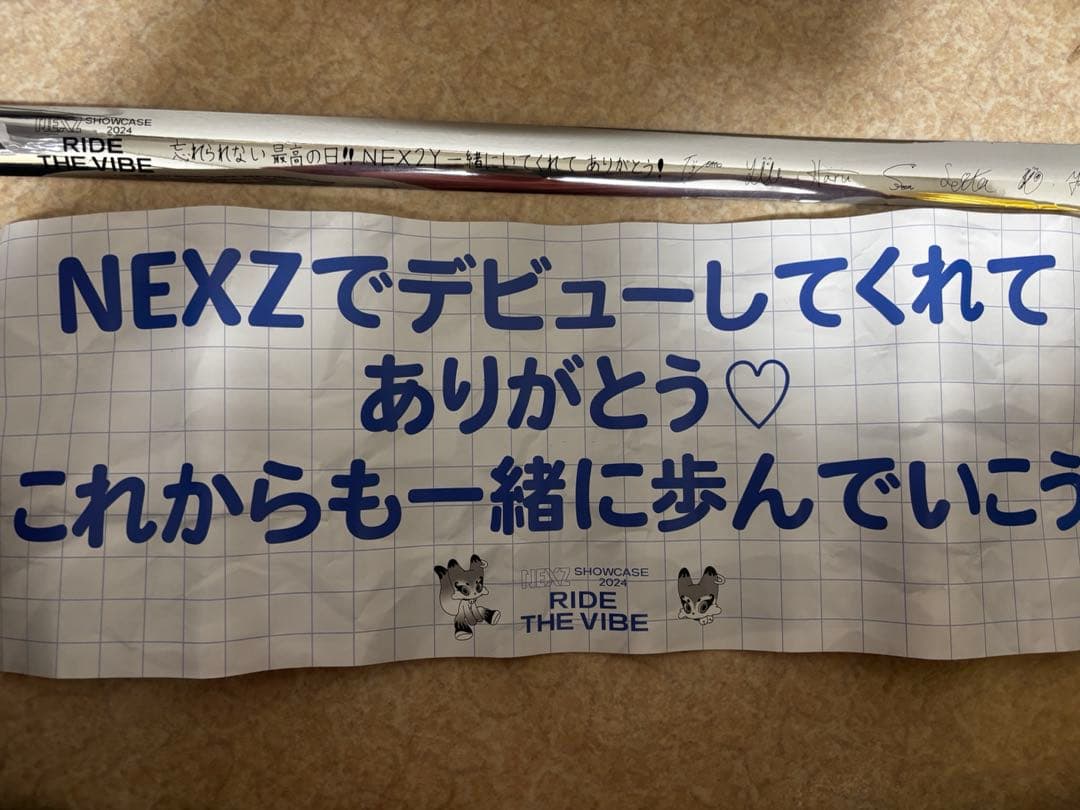 NEXZ SHOWCASE
2024
RIDE
THE VIBE
忘れられない最高の日!! NEX2Y 一緒にいてくれてありがとう!
Yuu Haru Seita
NEXZでデビューしてくれて
ありがとう♡
これからも一緒に歩んでいこう
NEXZ SHOWCASE
2024
RIDE
THE VIBE